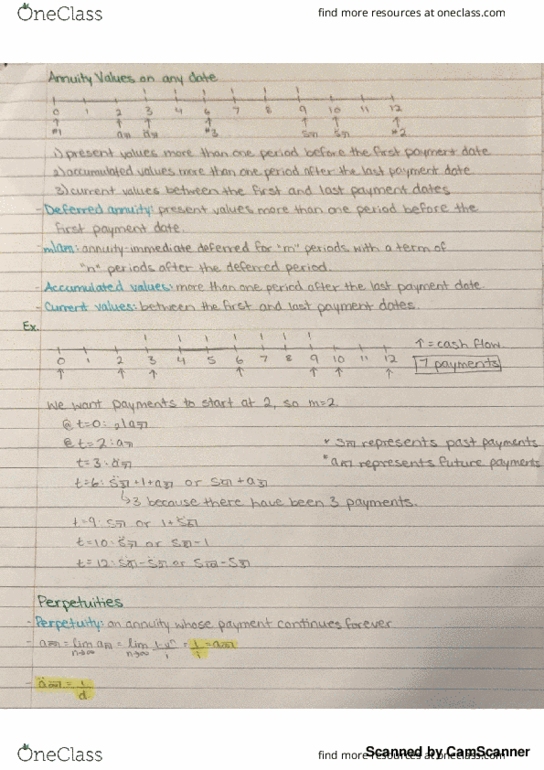 OneClass find more resources at oneclass.com
Annuity Values on any date
0 1 2 3 4 5 6 7 8 9 10 11 12
#1 #3 #2
1) present values more than one period before the first payment date
2) accumulated values more than one period after the last payment date
3) current values between the first and last payment dates
- Deferred annuity: present values more than one period before the
first payment date.
- annuity-immediate deferred for "m" periods with a term of
"n" periods after the deferred period.
- Accumulated values: more than one period after the last payment date
- Current values: between the first and last payment dates.
Ex.
0 1 2 3 4 5 6 7 8 9 10 11 12
↑ = cash flow
7 payments
We want payments to start at 2, so m=2
@ t=0: 2|a7̅|
@ t=2: a7̅|
* represents past payments
t=3: ä7̅|
* represents future payments
t=6: or
↳ 3 because there have been 3 payments.
t=9: s7̅| or
t=10: s̈7̅| or
t=12: or
Perpetuities
- Perpetuity: an annuity whose payment continues forever
- a∞̅| = lim n→∞ an̅| = lim n→∞ = 1/i = a∞̅|
- ä∞̅| = 1/d
Scanned by CamScanner
OneClass find more resources at oneclass.com